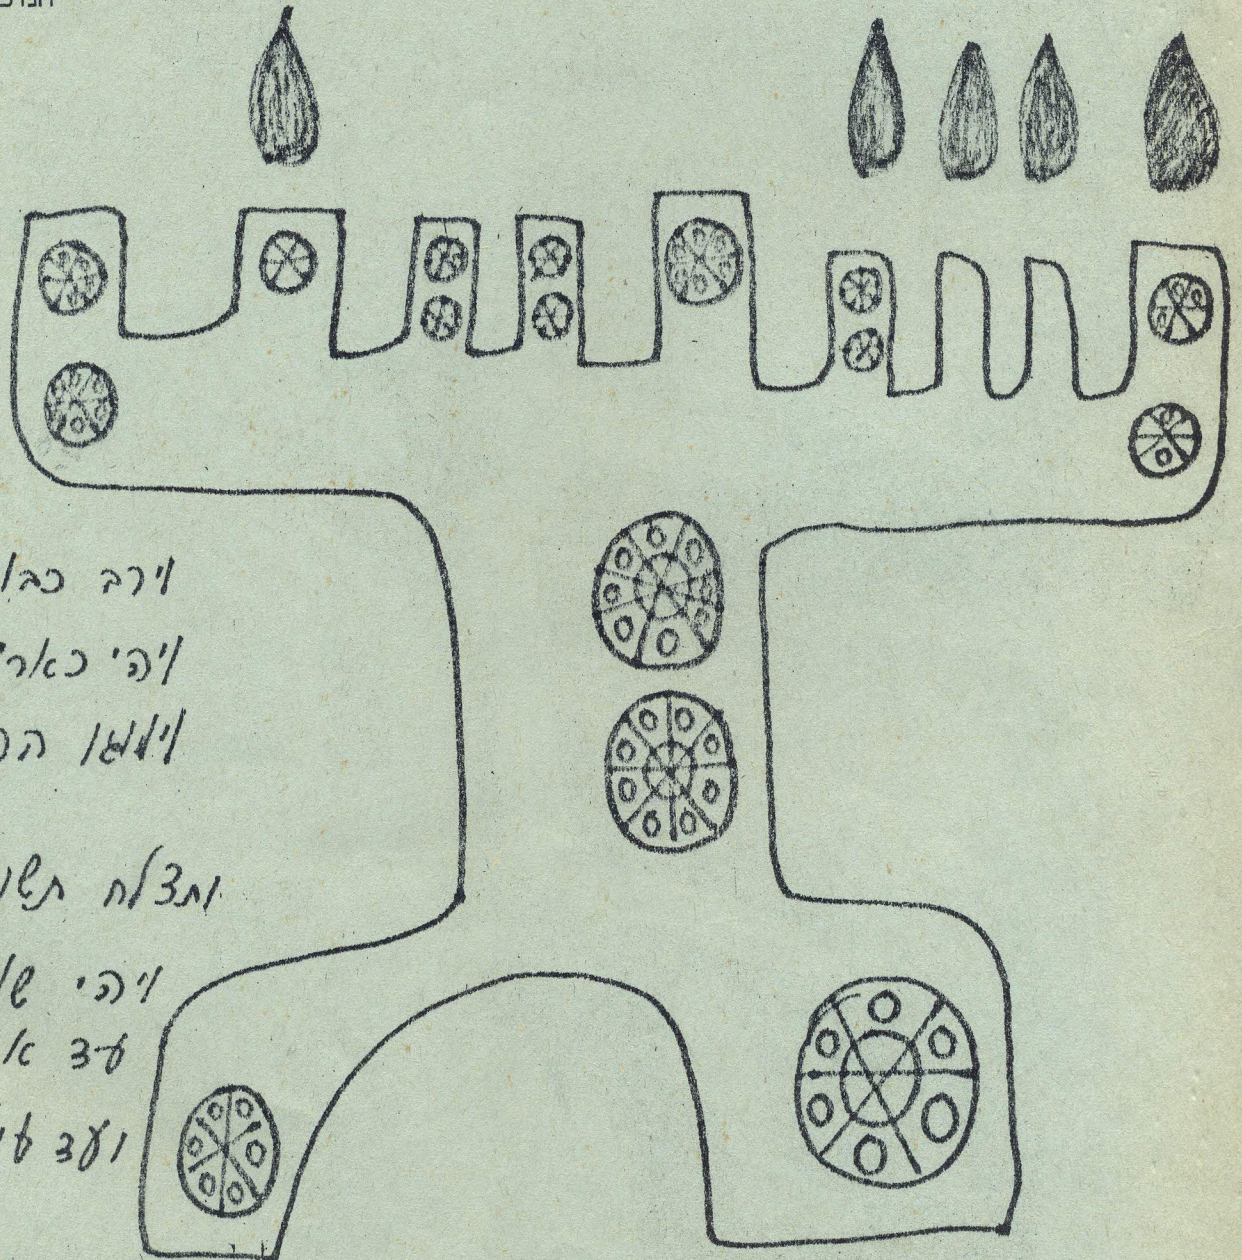 וירב כבו
ויהי כארי
וימגו הר
ותצלח תשו
ויהי שו
עד א
ועד עו